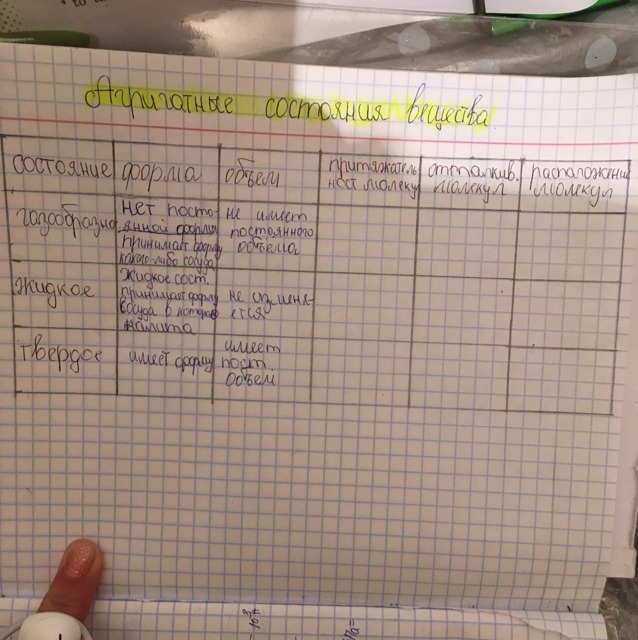 Агригатные состояния вещества
состояние форма объем притяжатель отталкив. расположение
ност молеку молекул молекул
газообразное
нет посто-
янной формы
принимает форму
какого-либо сосуда
не имеет
постоянного
объема
жидкое
жидкое сост.
принимает форму
сосуда в которое
налита
не изменя-
ется
твердое
имеет форму
имеет
пост.
объем